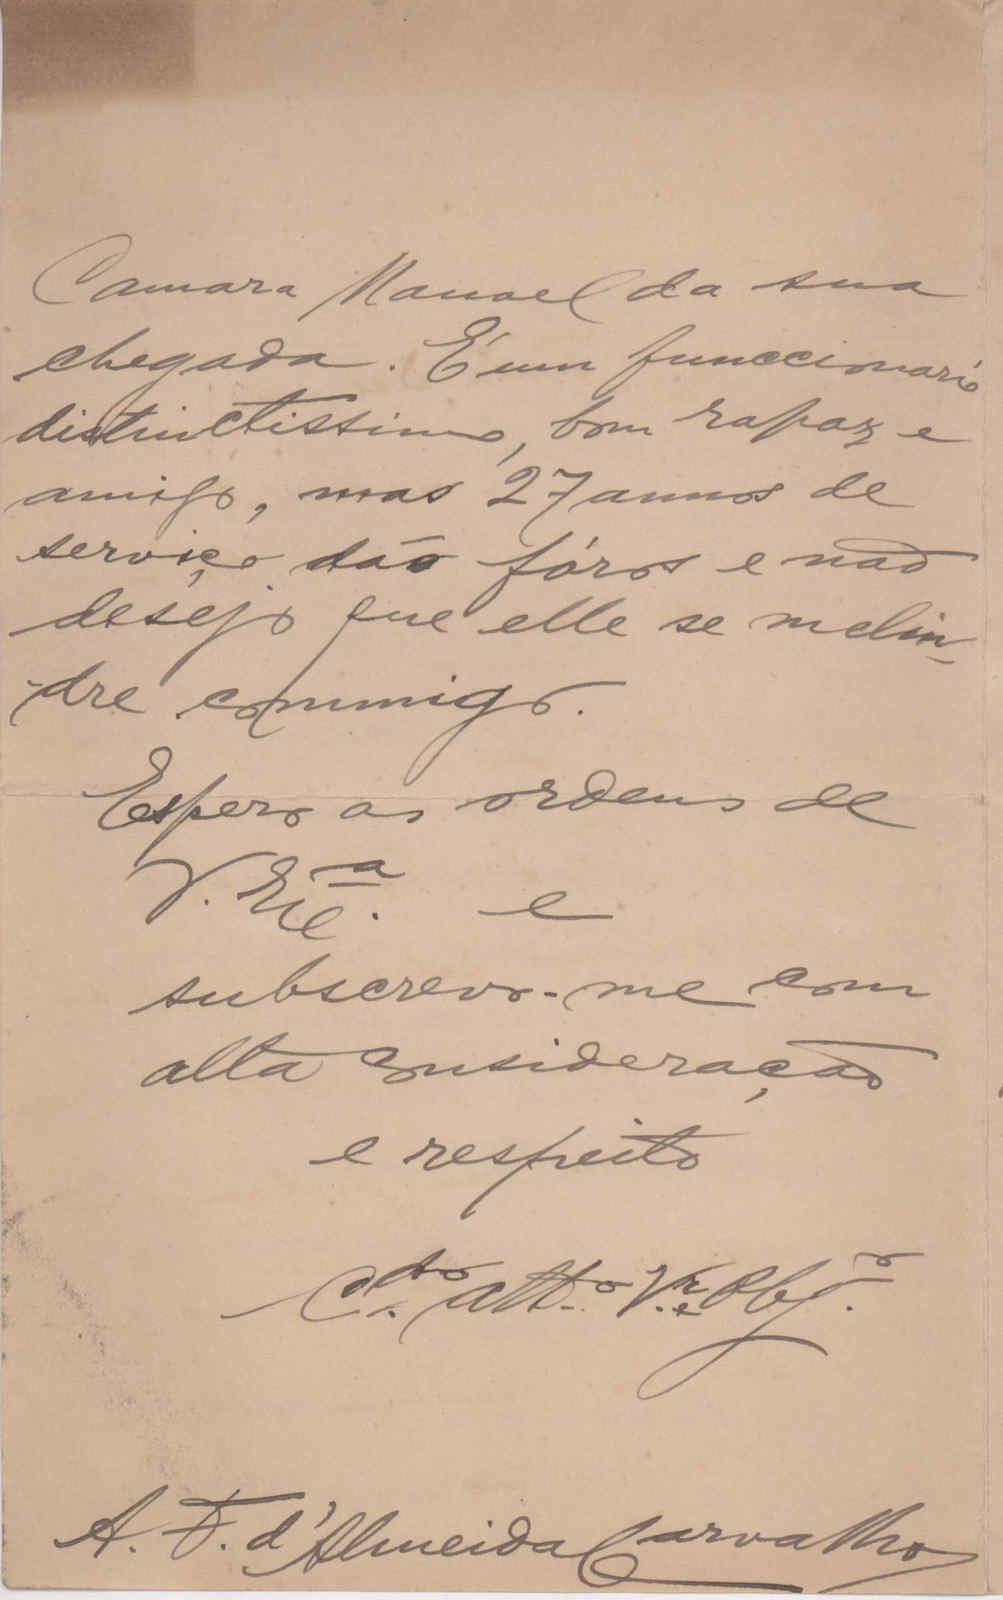 Camara Manoel da sua
chegada. É um funccionario
distinctissimo, bom rapaz e
amigo, mas 27 annos de
serviço dão fóros e não
desejo que elle se melin-
-dre commigo.
Espero as ordens de
V. Exc.ª e
subscrevo-me com
alta consideração
e respeito
C.do att.o V.or e Obg.o
A. F. d'Almeida Carvalho